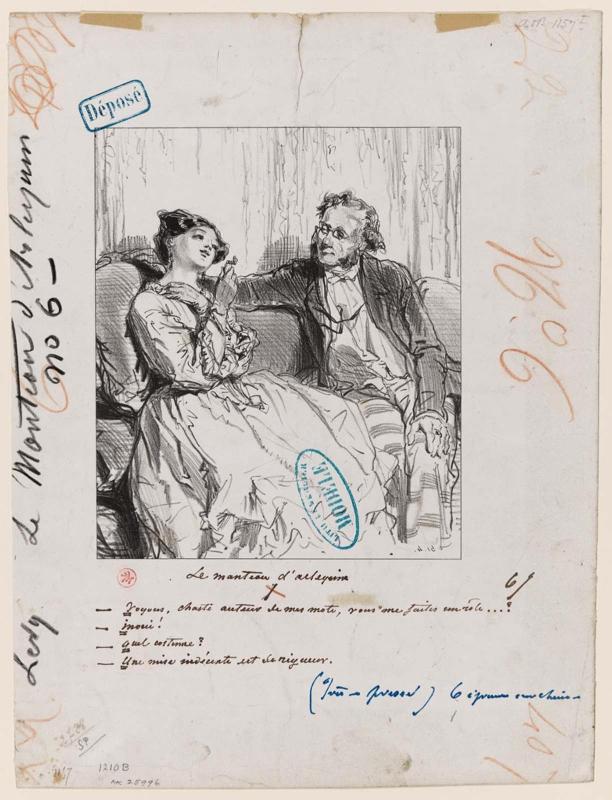 Déposé
Le Manteau d'Arlequin
no 6 —
No 6
Ledy
MODÈLE
Le manteau d'arlequin
6/
— Voyons, chaste auteur de mes mots, vous me faites un rôle...?
— inouï!
— quel costume?
— Une mise indécente est de rigueur.
(très-pressé) 6 épreuves sur chine —
1210B
MK 25996